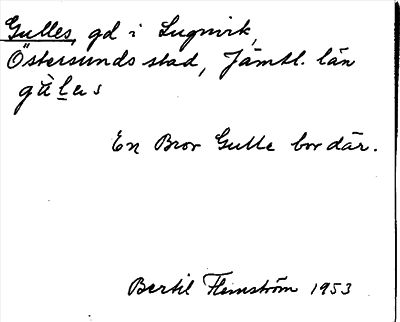 Gulles, gd i Lugnvik,
Östersunds stad, Jämtl. län
gùles
En Bror Gulle bor där.
Bertil Flemström 1953